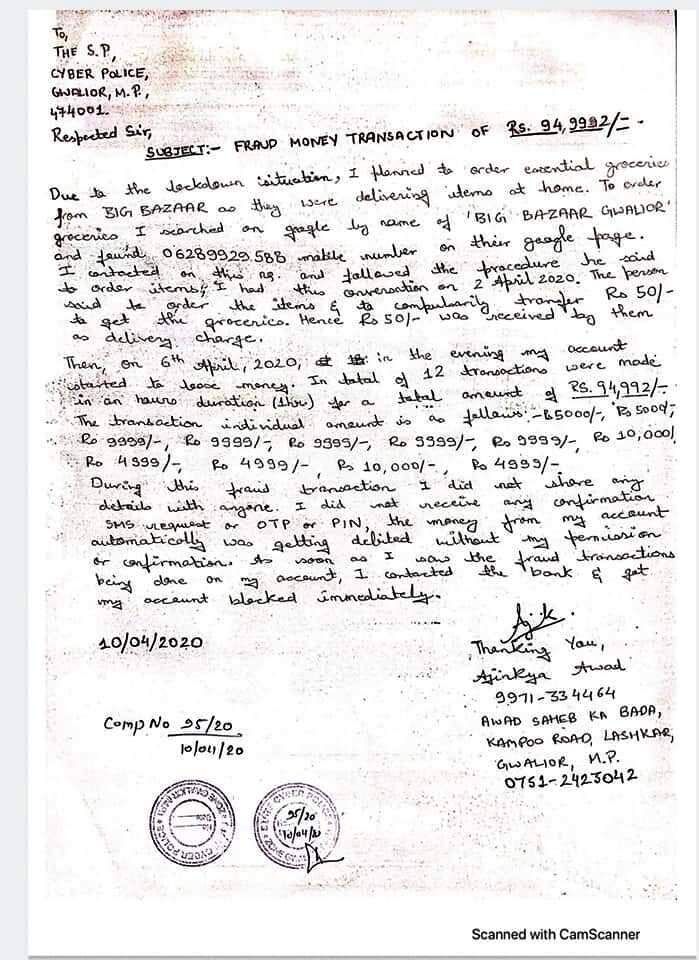 To,
THE S.P,
CYBER POLICE,
GWALIOR, M.P.,
474001.
Respected Sir,
SUBJECT:- FRAUD MONEY TRANSACTION OF Rs. 94,9992/- .
Due to the lockdown situation, I planned to order essential groceries
from BIG BAZAAR as they were delivering items at home. To order
groceries I searched on google by name of 'BIG BAZAAR GWALIOR'
and found 06289929588 mobile number on their google page.
I contacted on this no. and followed the procedure he said
to order items, I had this conversation on 2 April 2020. The person
said to order the items & to compulsarily transfer Rs 50/-
to get the groceries. Hence Rs 50/- was received by them
as delivery charge.
Then, on 6th April, 2020, in the evening my account
started to loose money. In total of 12 transactions were made
in an hours duration (1hr) for a total amount of Rs. 94,992/-.
The transaction individual amount is as follows:- Rs5000/-, Rs 5000/-,
Rs 9999/-, Rs 9999/-, Rs 9999/-, Rs 9999/-, Rs 9999/-, Rs 10,000/
Rs 4999/-, Rs 4999/-, Rs 10,000/-, Rs 4999/-
During this fraud transaction I did not share any
details with anyone. I did not receive any confirmation
SMS request or OTP or PIN, the money from my account
automatically was getting debited without my permission
or confirmation. As soon as I saw the fraud transactions
being done on my account, I contacted the bank & got
my account blocked immediately.
10/04/2020
Thanking You,
Ajinkya Awad
9971-334464
AWAD SAHEB KA BADA,
KAMPOO ROAD, LASHKAR,
GWALIOR, M.P.
0751-2423042
Comp No 95/20
10/04/20
CYBER POLICE
95/20
10/04/20
CYBER POLICE
Scanned with CamScanner